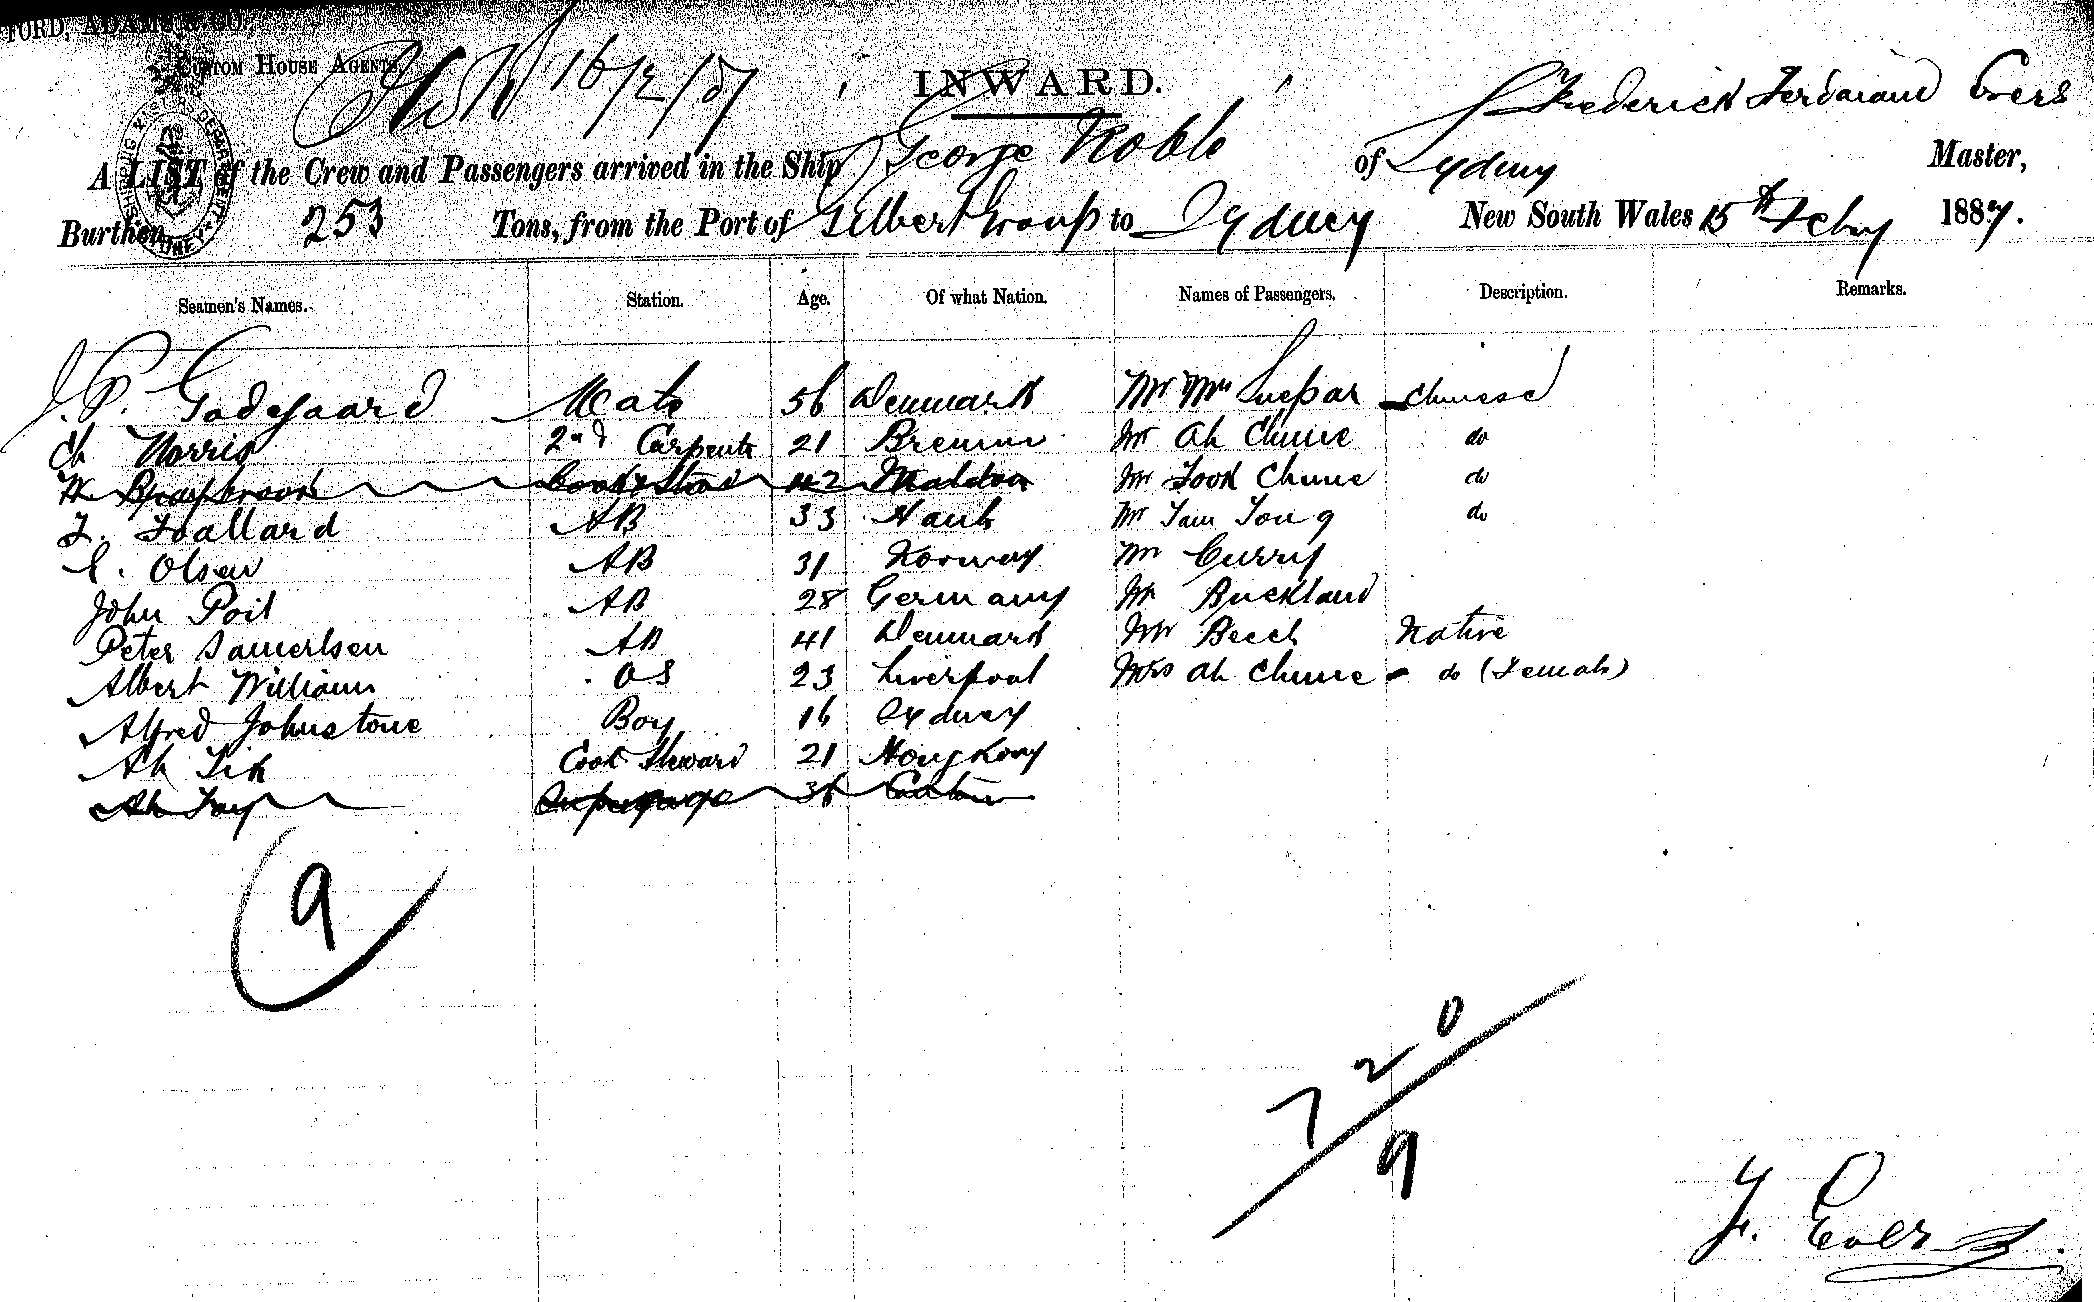 FORD, ADAMS & CO.
CUSTOM HOUSE AGENTS
16/2/87
INWARD.
A LIST of the Crew and Passengers arrived in the Ship George Noble of Sydney Frederick Ferdinand Evers Master,
Burthen 253 Tons, from the Port of Gilbert Group to Sydney New South Wales 15th Feby 1887.
Seamen's Names. Station. Age. Of what Nation. Names of Passengers. Description. Remarks.
J. P. Godegaard Mate 56 Denmark Mr Mrs Chinese
Ch Norris 2nd Carpentr 21 Bremen Mr Ah Chune do
W 42 Mr Took Chune do
F. Foallard AB 33 Mr Tam Tong do
Olsen AB 31 Norway Mr Curry
John Poil AB 28 Germany Mr Buckland
Peter Samerlsen AB 41 Denmark Mr Beech Native
Albert Williams OS 23 Liverpool Mrs Ah Chune - do (Female)
Alfred Johnstone Boy 16 Sydney
Ah Sik Cook Steward 21 Hong Kong
Ah Foy 36 Canton
9
7 20
9
F. Evers